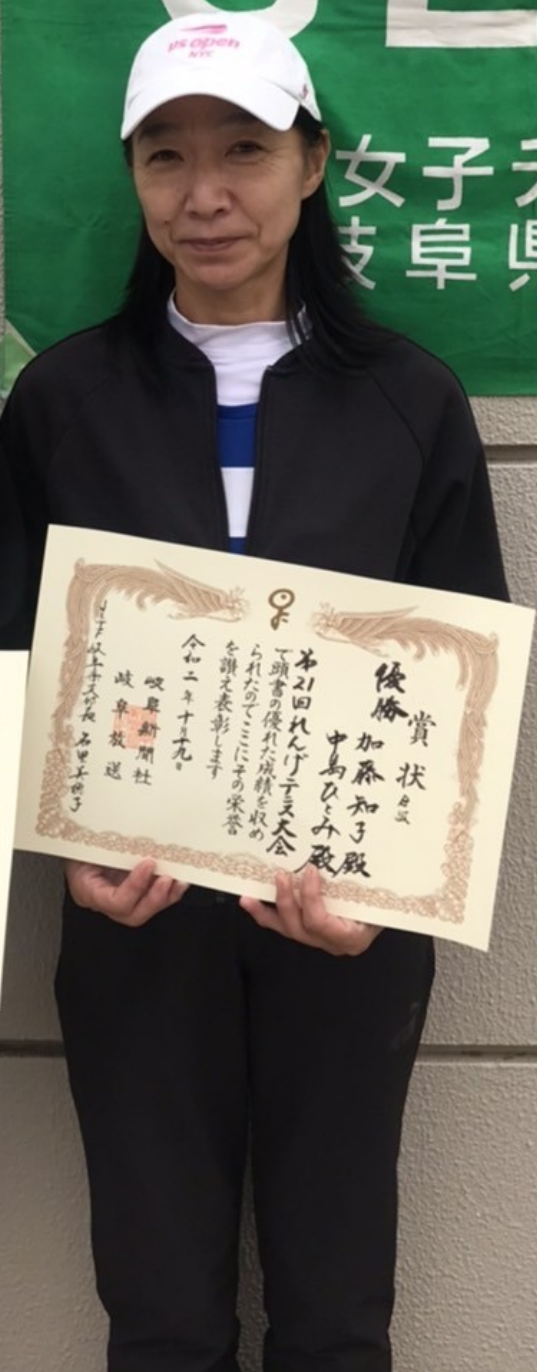 us open
NYC
女子テ
岐阜県
賞状
優勝
加藤知子殿
中島ひとみ殿
第21回れんげテニス大会
で頭書の優れた成績を収め
られたのでここにその栄誉
を讃え表彰します
令和二年十月十九日
岐阜新聞社
岐阜放送